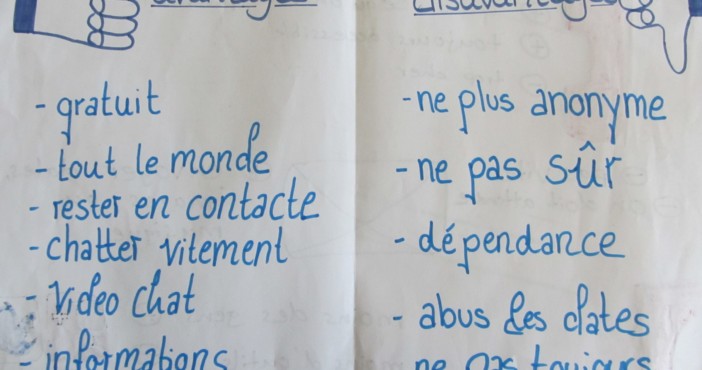 - gratuit
- tout le monde
- rester en contacte
- chatter vitement
- video chat
- informations
- ne plus anonyme
- ne pas sûr
- dépendance
- abus des dates
ne pas toujours